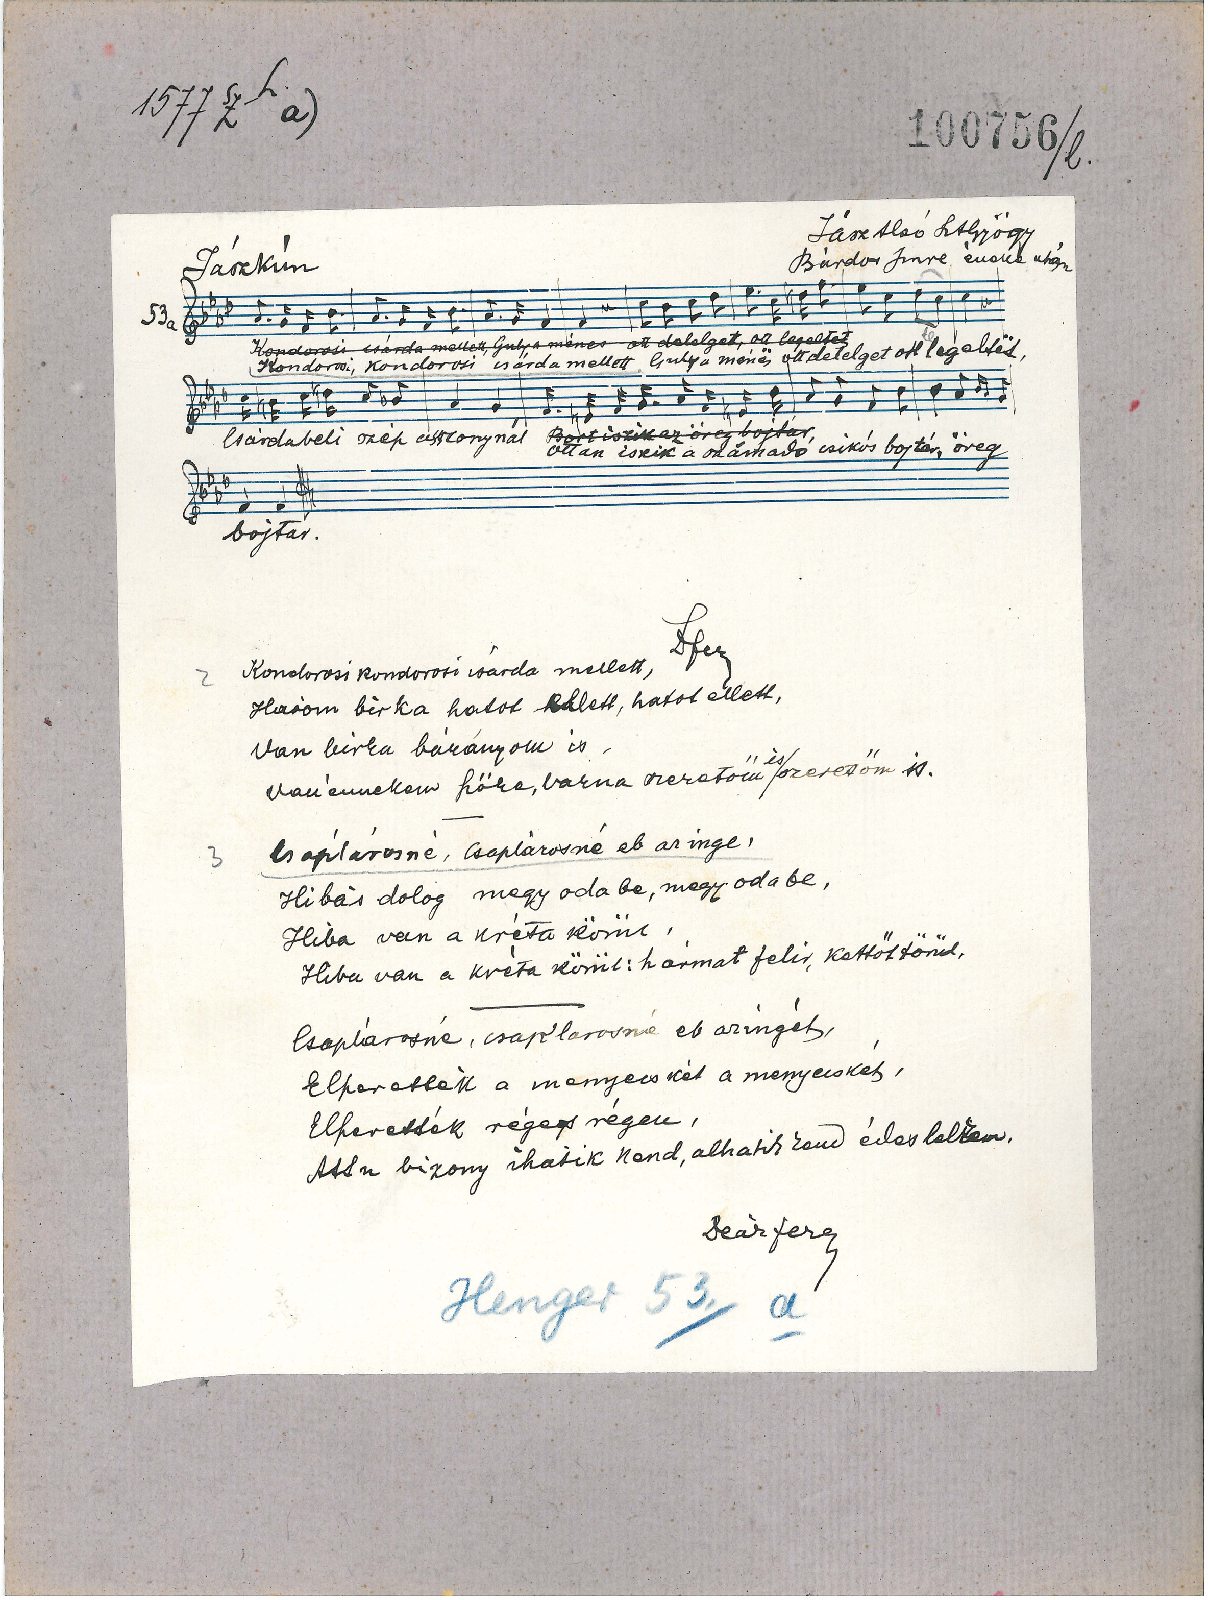 1577 sz h. a)
100756/l.
Jász Alsó Sztgyögy
Jászkún
Bárdos Imre éneke után
53a
Kondorosi csárda mellett, Gulya ménes ott delelget, ott legeltet
Kondorosi, kondorosi csárda mellett Gulya ménes ott delelget ott legeltet,
Csárdabeli szép asszonynál Bort iszik az öreg bojtár,
ottan iszik a számadó csikós bojtár, öreg
bojtár.
Dfer
2 Kondorosi kondorosi csárda mellett,
Három birka hatot ellett, hatot ellett,
Van birka bárányom is,
Van énnekem szőke, barna szeretőm és/szeretőm is.
3 Csaplárosné, Csaplárosné eb az inge,
Hibás dolog megy oda be, megy oda be,
Hiba van a kréta körül,
Hiba van a kréta körül: hármat felir, kettőt töröl.
Csaplárosné, csaplárosné eb az ingét,
Elperelték a menyecskét a menyecskét,
Elperelték régen régen,
bizony ihatik kend, alhatik kend édes lelkem.
Deák fer
Henger 53. a